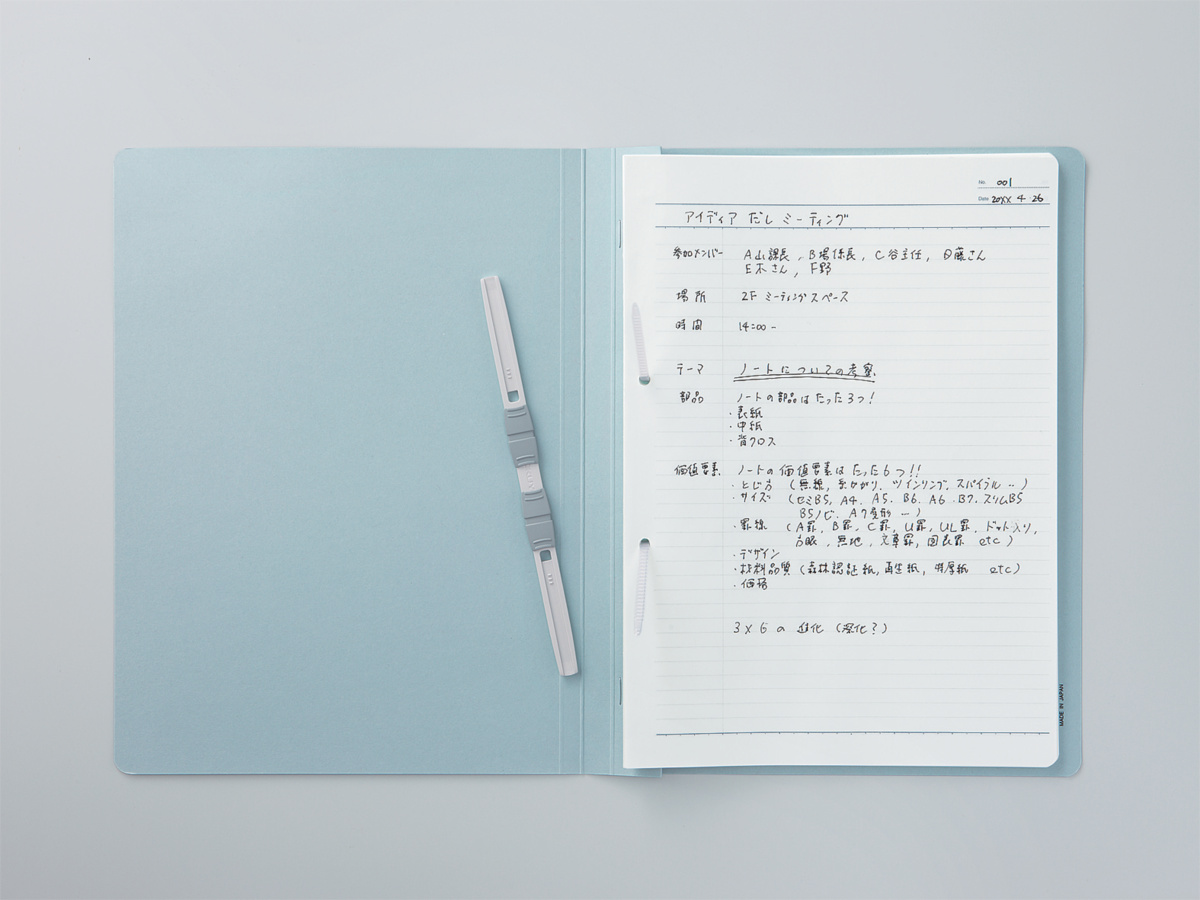 No. 001
Date 20XX 4 26
アイディア だし ミーティング
参加メンバー A山課長, B場係長, C谷主任, D藤さん
E木さん, F野
場所 2F ミーティングスペース
時間 14:00 -
テーマ ノートについての考察
部品 ノートの部品はたった3つ!
・表紙
・中紙
・背クロス
価値要素 ノートの価値要素はたった6つ!!
・とじ方 (無線, 糸かがり, ツインリング, スパイラル …)
・サイズ (セミB5, A4, A5, B6, A6, B7, スリムB5
B5ノビ, A7変形 …)
・罫線 (A罫, B罫, C罫, U罫, UL罫, ドット入り,
方眼, 無地, 文章罫, 図表罫 etc)
・デザイン
・材料品質 (森林認証紙, 再生紙, 特厚紙 etc)
・価格
3×6の 進化 (深化?)
MADE IN JAPAN